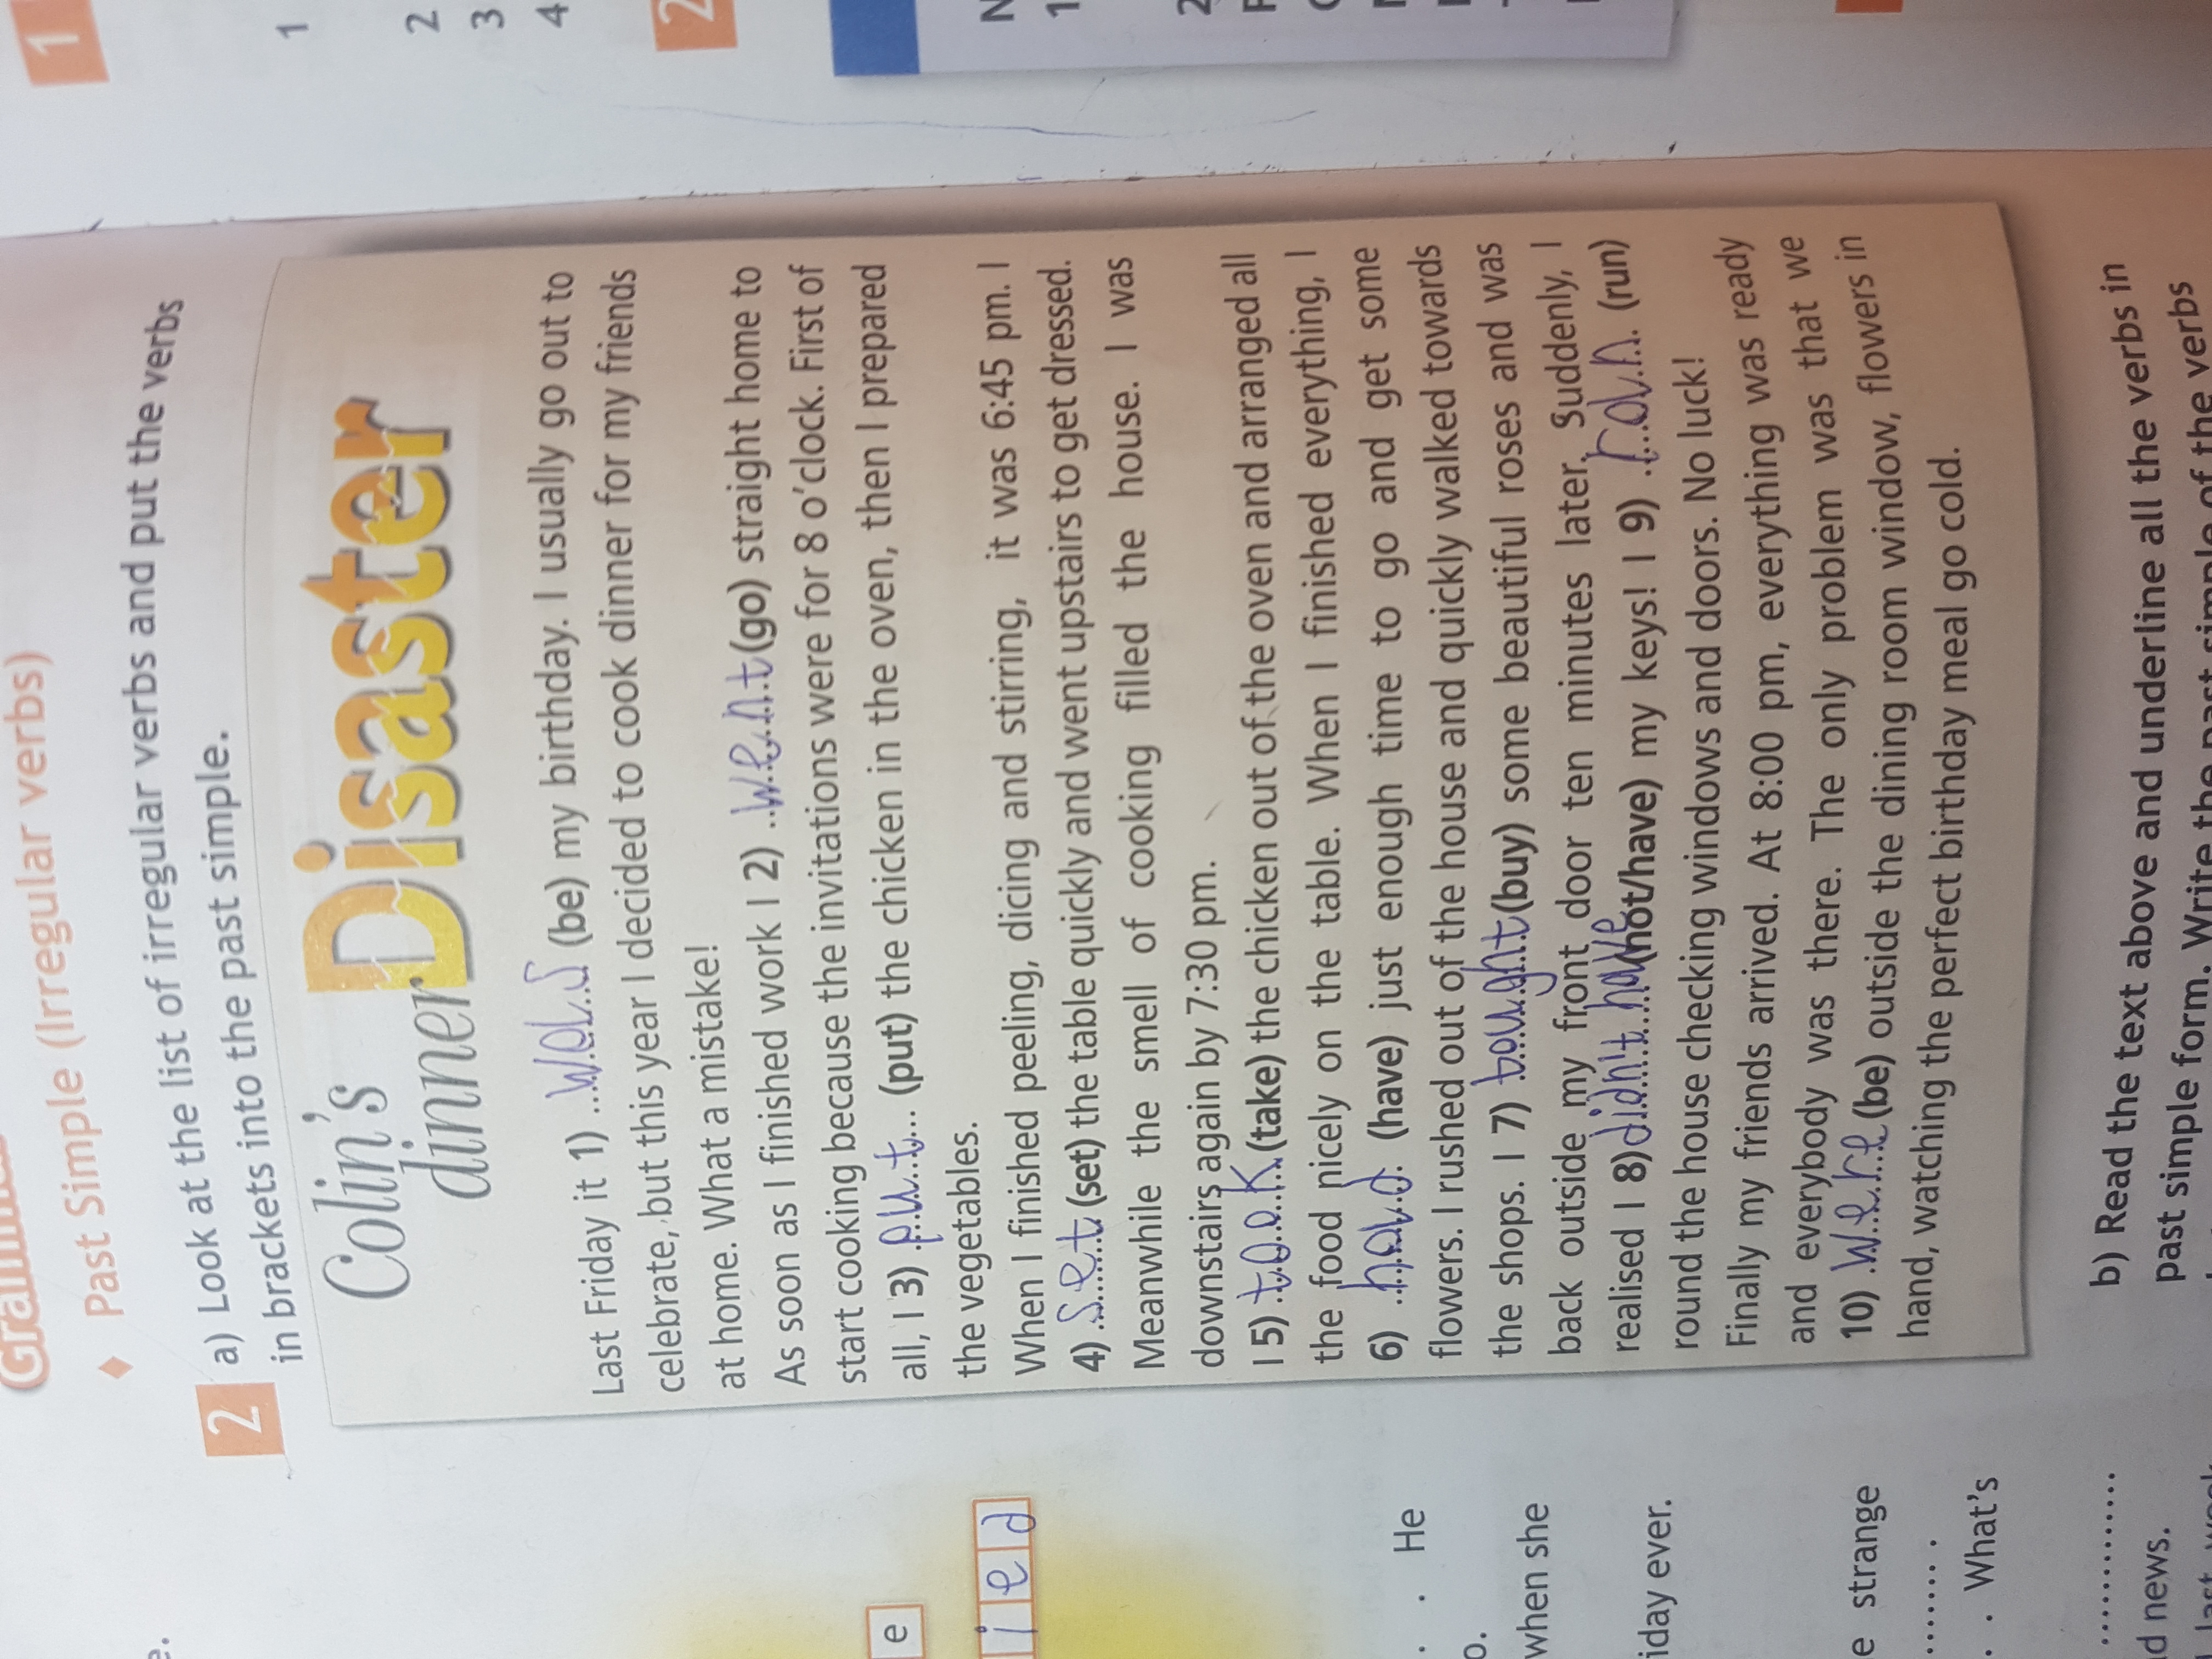 1
1
2
3
4
2
N
1
2
Past Simple (Irregular verbs)
2 a) Look at the list of irregular verbs and put the verbs
in brackets into the past simple.
Colin's
dinner Disaster
Last Friday it 1) ...was... (be) my birthday. I usually go out to
celebrate, but this year I decided to cook dinner for my friends
at home. What a mistake!
As soon as I finished work I 2) ..went (go) straight home to
start cooking because the invitations were for 8 o'clock. First of
all, I 3) .put... (put) the chicken in the oven, then I prepared
the vegetables.
When I finished peeling, dicing and stirring, it was 6:45 pm. I
4) .set (set) the table quickly and went upstairs to get dressed.
Meanwhile the smell of cooking filled the house. I was
downstairs again by 7:30 pm.
I 5) took (take) the chicken out of the oven and arranged all
the food nicely on the table. When I finished everything, I
6) ..had.. (have) just enough time to go and get some
flowers. I rushed out of the house and quickly walked towards
the shops. I 7) bought (buy) some beautiful roses and was
back outside my front door ten minutes later. Suddenly, I
realised I 8) didn't have (not/have) my keys! I 9) ..ran.. (run)
round the house checking windows and doors. No luck!
Finally my friends arrived. At 8:00 pm, everything was ready
and everybody was there. The only problem was that we
10) .were (be) outside the dining room window, flowers in
hand, watching the perfect birthday meal go cold.
b) Read the text above and underline all the verbs in
past simple form. Write the past simple of the verbs
e.
e
i e d
. . He
o.
when she
iday ever.
e strange
........ .
. . What's
.............
d news.
last week